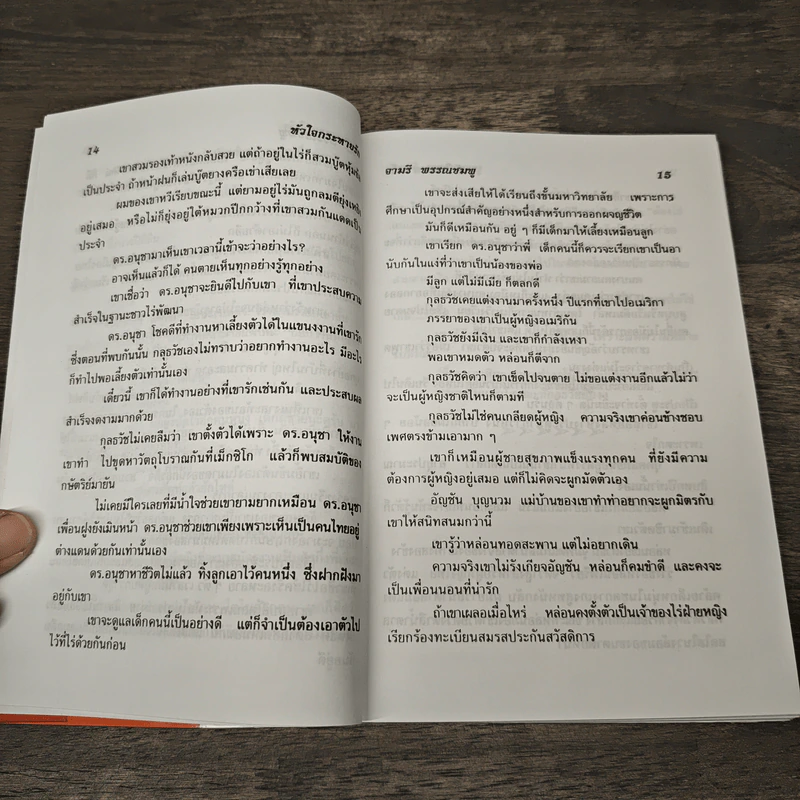 14
หัวใจกระหายรัก
เขาสวมรองเท้าหนังกลับสวย แต่ถ้าอยู่ในไร่ก็สวมบู๊ตหุ้มข้อ
เป็นประจำ ถ้าหน้าฝนก็เล่นบู๊ตยางครือเข่าเสียเลย
ผมของเขาหวีเรียบขณะนี้ แต่ยามอยู่ไร่มันถูกลมตียุ่งเหยิง
อยู่เสมอ หรือไม่ก็ยุ่งอยู่ใต้หมวกปีกกว้างที่เขาสวมกันแดดเป็น
ประจำ
ดร.อนุชามาเห็นเขาเวลานี้เข้าจะว่าอย่างไร?
อาจเห็นแล้วก็ได้ คนตายเห็นทุกอย่างรู้ทุกอย่าง
เขาเชื่อว่า ดร.อนุชาจะยินดีไปกับเขา ที่เขาประสบความ
สำเร็จในฐานะชาวไร่พัฒนา
ดร.อนุชา โชคดีที่ทำงานหาเลี้ยงตัวได้ในแขนงงานที่เขารัก
ซึ่งตอนที่พบกันนั้น กุลธวัชเองไม่ทราบว่าอยากทำงานอะไร มีอะไร
ก็ทำไปพอเลี้ยงตัวเท่านั้นเอง
เดี๋ยวนี้ เขาก็ได้ทำงานอย่างที่เขารักเช่นกัน และประสบผล
สำเร็จงดงามมากด้วย
กุลธวัชไม่เคยลืมว่า เขาตั้งตัวได้เพราะ ดร.อนุชา ให้งาน
เขาทำ ไปขุดหาวัตถุโบราณกันที่เม็กซิโก แล้วก็พบสมบัติของ
กษัตริย์มายัน
ไม่เคยมีใครเลยที่มีน้ำใจช่วยเขายามยากเหมือน ดร.อนุชา
เพื่อนฝูงยังเมินหน้า ดร.อนุชาช่วยเขาเพียงเพราะเห็นเป็นคนไทยอยู่
ต่างแดนด้วยกันเท่านั้นเอง
ดร.อนุชาหาชีวิตไม่แล้ว ทิ้งลูกเอาไว้คนหนึ่ง ซึ่งฝากฝังมา
อยู่กับเขา
เขาจะดูแลเด็กคนนี้เป็นอย่างดี แต่ก็จำเป็นต้องเอาตัวไป
ไว้ที่ไร่ด้วยกันก่อน
จามรี พรรณชมพู
15
เขาจะส่งเสียให้ได้เรียนถึงชั้นมหาวิทยาลัย เพราะการ
ศึกษาเป็นอุปกรณ์สำคัญอย่างหนึ่งสำหรับการออกผจญชีวิต
มันก็ดีเหมือนกัน อยู่ ๆ ก็มีเด็กมาให้เลี้ยงเหมือนลูก
เขาเรียก ดร.อนุชาว่าพี่ เด็กคนนี้ก็ควรจะเรียกเขาเป็นอา
นับกันในแง่ที่ว่าเขาเป็นน้องของพ่อ
มีลูก แต่ไม่มีเมีย ก็ตลกดี
กุลธวัชเคยแต่งงานมาครั้งหนึ่ง ปีแรกที่เขาไปอเมริกา
ภรรยาของเขาเป็นผู้หญิงอเมริกัน
กุลธวัชยังมีเงิน และเขาก็กำลังเหงา
พอเขาหมดตัว หล่อนก็ตีจาก
กุลธวัชคิดว่า เขาเข็ดไปจนตาย ไม่ขอแต่งงานอีกแล้วไม่ว่า
จะเป็นผู้หญิงชาติไหนก็ตามที
กุลธวัชไม่ใช่คนเกลียดผู้หญิง ความจริงเขาค่อนข้างชอบ
เพศตรงข้ามเอามาก ๆ
เขาก็เหมือนผู้ชายสุขภาพแข็งแรงทุกคน ที่ยังมีความ
ต้องการผู้หญิงอยู่เสมอ แต่ก็ไม่คิดจะผูกมัดตัวเอง
อัญชัน บุญนวม แม่บ้านของเขาทำท่าอยากจะผูกมิตรกับ
เขาให้สนิทสนมกว่านี้
เขารู้ว่าหล่อนทอดสะพาน แต่ไม่อยากเดิน
ความจริงเขาไม่รังเกียจอัญชัน หล่อนก็คมขำดี และคงจะ
เป็นเพื่อนนอนที่น่ารัก
ถ้าเขาเผลอเมื่อไหร่ หล่อนคงตั้งตัวเป็นเจ้าของไร่ฝ่ายหญิง
เรียกร้องทะเบียนสมรสประกันสวัสดิการ